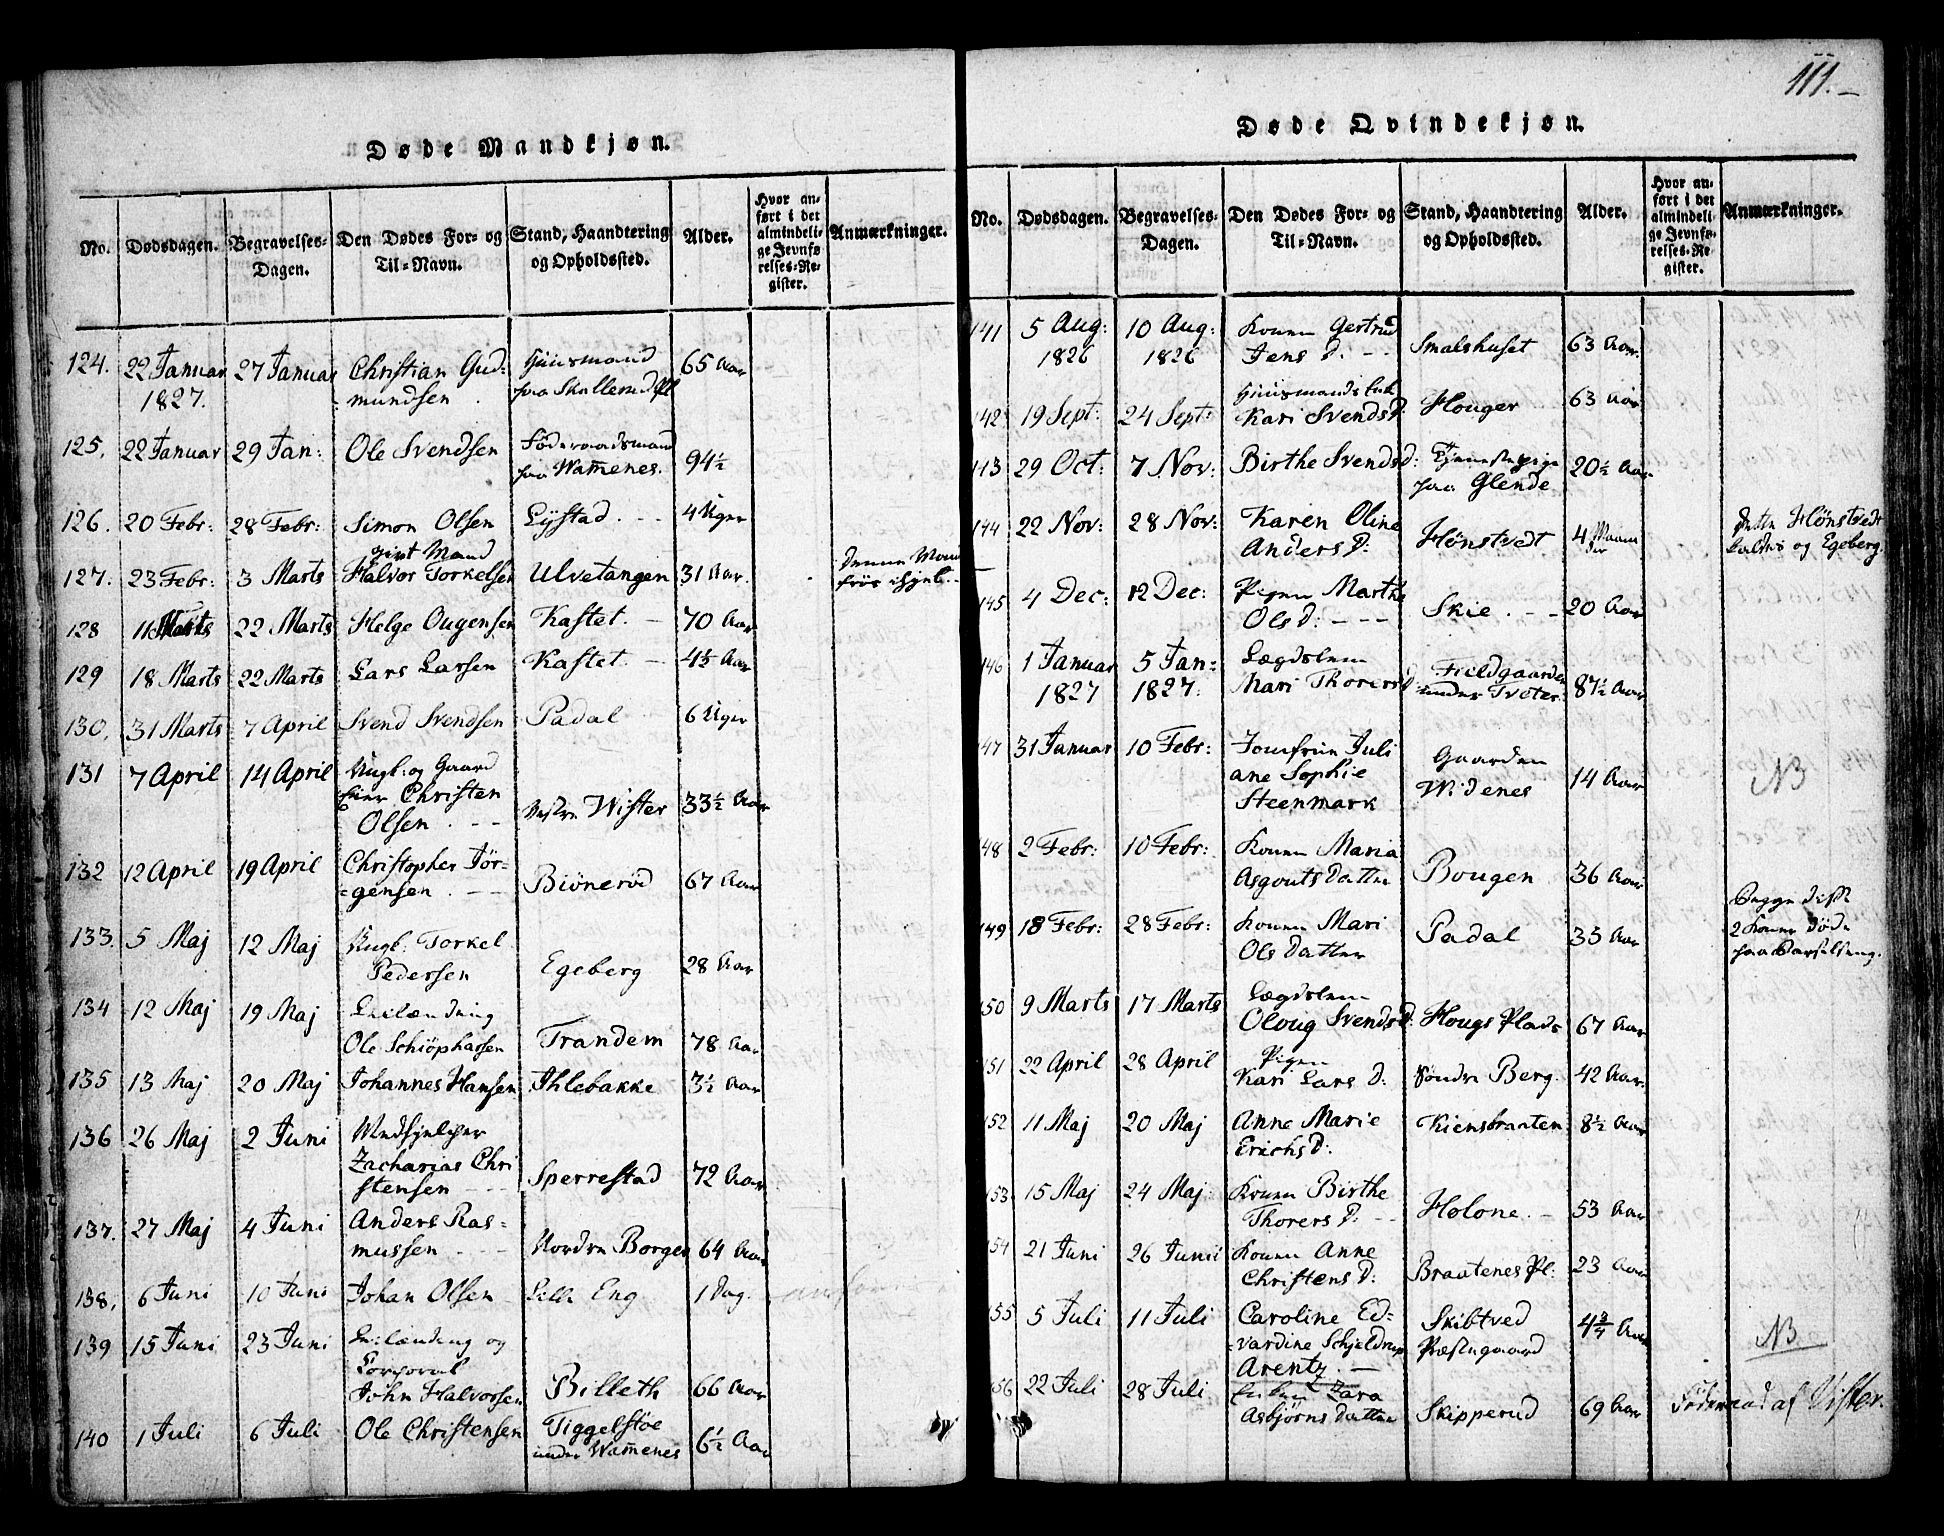 111.
Døde Mandkjøn.
No. Dødsdagen. Begravelses-Dagen. Den Dødes For- og Til-Navn. Stand, Haandtering og Opholdssted. Alder. Hvor anført i det almindelige Jevnførelses-Register. Anmærkninger.
124. 22 Januar 27 Januar Christian Gud- Huusmand 65 Aar
1827. mundsen paa Skullerud
125. 22 Januar 29 Jan: Ole Svendsen Föderaadsmand 94½
paa Wamenes.
126. 20 Febr: 28 Febr: Simon Olsen Lystad. 4 Uger
givt Mand
127. 23 Febr: 3 Marts Halvor Torkelsen Ulvetangen 31 Aar. denne Mand
frös ihjel.
128 11 Marts 22 Marts Helge Ougensen Kastet. 70 Aar
129 18 Marts 22 Marts Lars Larsen Kastet. Aar
130. 31 Marts 7 April Svend Svendsen Padal 6 Uger
131 7 April 14 April Ungk: og Gaard
Eier Christen Vestre Wister 33½ Aar
Olsen
132 12 April 19 April Christopher Jör-
=gensen Biöneröd 67 Aar
133. 5 Maj 12 Maj Ungk: Torkel
Pedersen Egeberg 28 Aar
134 12 Maj 19 Maj
Ole Schiöphassen Trandem 78 Aar
135 13 Maj 20 Maj Johannes Hansen Ihlebakke 3½ Aar
136 26 Maj 2 Juni Medhjelper
Zacharias Chri
stensen Sperrestad 72 Aar
137. 27 Maj 4 Juni Anders Ras-
mussen Nordre Borgen 64 Aar
138. 6 Juni 10 Juni Johan Olsen Lille Eng 1 Dag.
139 15 Juni 23 Juni og
Corporal
John Halvorsen Billeth 66 Aar
140 1 Juli 6 Juli Ole Christensen Tiggelstöe 6½ Aar
under Wamenes
Døde Qvindekjøn.
No. Dødsdagen. Begravelses-Dagen. Den Dødes For- og Til-Navn. Stand, Haandtering og Opholdssted. Alder. Hvor anført i det almindelige Jevnførelses-Register. Anmærkninger.
141 5 Aug: 10 Aug: Konen Gertrud Smalshuset 63 Aar.
1826 1826 Jens D:
142 19 Sept: 24 Sept: Huusmands Enke
Kari Svends D: Houger 63 Aar
143 29 Oct: 7. Nov: Birthe Svends D: Tjenestepige 20½ Aar
paa Glende
144 22 Nov: 28 Nov: Karen Oline Hönstvedt 4 Maane
Anders D: der dette Hönstvedt
kaldes og Egeberg.
145 4 Dec: 12 Dec: Pigen Marthe Skie. 20 Aar
Ols D:
146 1 Januar 5 Jan: Lægdslem Fieldgaarden 87½ Aar
1827 1827. Mari Thorers D: under Tveter
147 31 Januar 10 Febr: Jomfrue Juli Gaarden 14 Aar NB
ane Sophie Widenes
Steenmark
148 2 Febr: 10 Febr: Konen Maria Bougen 36 Aar
Asgouts Datter
Begge disse
149 18 Febr: 28 Febr: Konen Mari Padal 35 Aar 2 Koner döde
Ols Datter paa Barselseng.
150 9 Marts 17 Marts Lægdslem
Oloug Svends D: Hougs Plads 67 Aar
151 22 April 28 April Pigen
Kari Lars D: Söndre Berg. 42 Aar.
152 11 Maj 20 Maj Anne Marie Kiensbraaten 8½ Aar
Erichs D:
153 15 Maj 24 Maj Konen Birthe Holone. 53 Aar
Thorers D:
154 21 Juni 26 Junii Konen Anne Braatenes Pl: 23 Aar
Christens D:
155 5 Juli 11 Juli Caroline Ed= Skibtved 4¾ Aar NB
=vardine Schjeldrup Præstegaard
Arentz.
156 22 Juli 28 Juli Enken Zara Skipperud 69 Aar Föderaad af Vister.
Asbjörns Datter